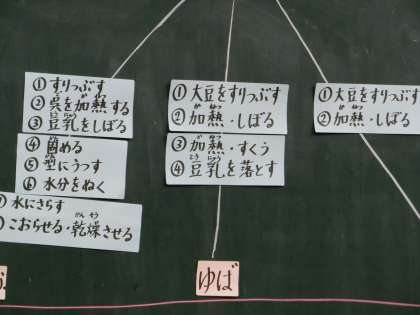 ① すりつぶす
② 呉を加熱する
③ 豆乳をしぼる
④ 固める
⑤ 型にうつす
⑥ 水分をぬく
① 水にさらす
② こおらせる・乾燥させる
① 大豆をすりつぶす
② 加熱・しぼる
③ 加熱・すくう
④ 豆乳を落とす
ゆば
① 大豆をすりつぶす
② 加熱・しぼる